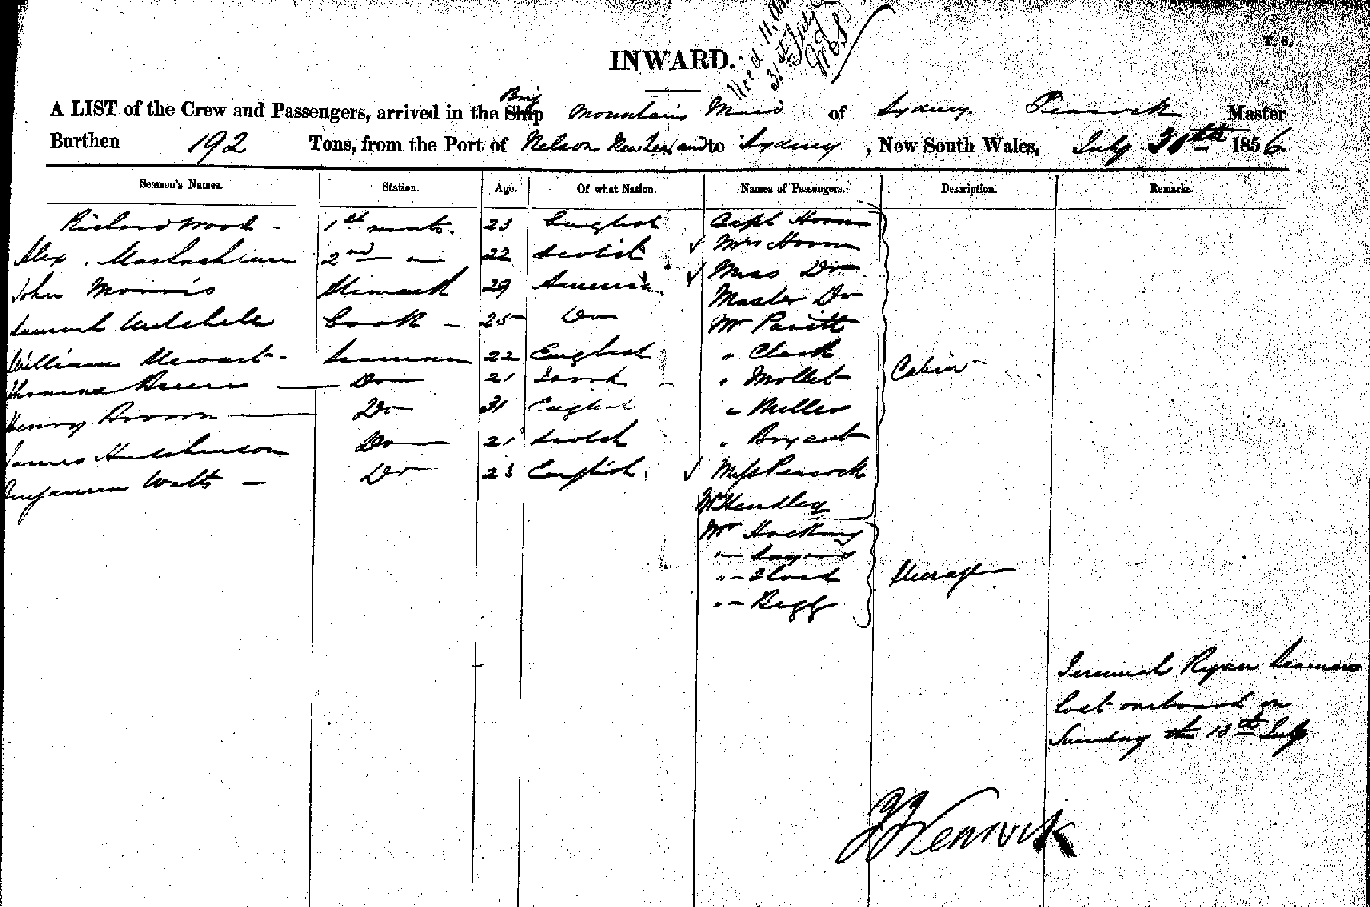 T. 6.
31st July
INWARD.
Brig
A LIST of the Crew and Passengers, arrived in the Ship Mountain Maid of Sydney Peacock Master
Burthen 192 Tons, from the Port of Nelson New Zealand to Sydney, New South Wales, July 31th 1856
Seamen's Names. Station. Age. Of what Nation. Names of Passengers. Description. Remarks.
Richard Wood - 1st mate. 23 English Capt Horn
Alex. 2nd — 22 Scotch √ Mrs Horn
John Morris Steward 29 America √ Miss Do
Master Do
Samuel Cook - 25 Do Mr
William Stewart - Seaman 22 English " Clark
Thomas — Do 21 " Mollet Cabin
Henry Brown — Do 31 English " Buller
James Hutchinson Do 21 Scotch " Bryant
Benjamin Watts — Do 23 English. √ Miss Peacock
Mr Handley
Mr Hocking
"-
"- Steerage
"-
Jeremiah Ryan Seaman
lost overboard on
Sunday the 13th July